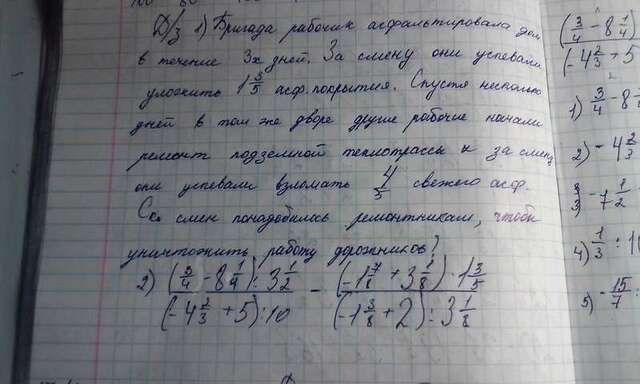 Д/з 1) Бригада рабочих асфальтировала дом
в течение 3х дней. За смену они успевали
уложить 1 3/5 асф. покрытия. Спустя несколько
дней в том же дворе другие рабочие начали
ремонт подземной теплотрассы и за смену
они успевали взломать 4/5 свежего асф.
смен понадобилось ремонтникам, чтобы
уничтожить работу дорожников?
2) (3/4 - 8 1/4) : 3 1/2 / (-4 2/3 + 5) : 10 - (-1 7/8 + 3 1/8) : 1 3/5 / (-1 3/8 + 2) : 3 1/8
(3/4 - 8 1/4)
(-4 2/3 + 5
1) 3/4 - 8
2) -4 2/3
-7 1/2
4) 1/3 : 10
5) -15/7 :